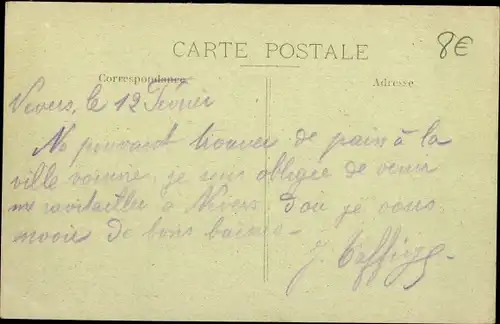 8€
CARTE POSTALE
Correspondance
Adresse
Nevers, le 12 Février
Ne pouvant trouver de pain à la
ville voisine, je suis obligée de venir
me ravitailler à Nevers d'où je vous
envoie de bons baisers -
J.